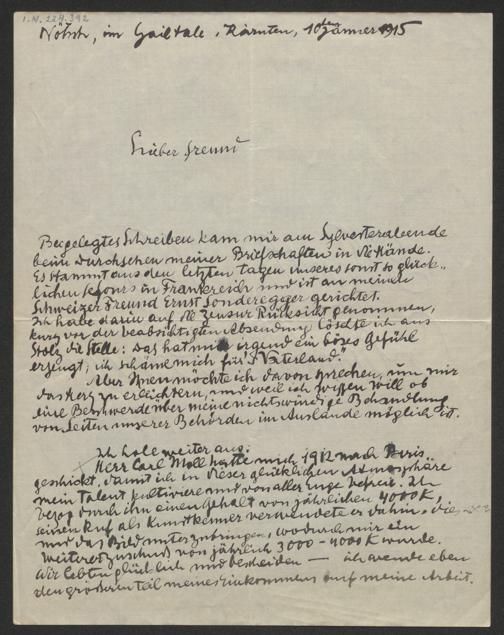 I.N. 224.392
Nötsch, im Gailtale, Kärnten, 10ten Jänner 1915
Lieber Freund
Beigelegtes Schreiben kam mir am Sylvesterabende
beim Durchsehen meiner Briefschaften in die Hände.
Es stammt aus den letzten Tagen unseres sonst so glück-
lichen sejours in Frankreich und ist an meinen
Schweizer Freund Ernst Sonderegger gerichtet.
Ich habe darin auf die Zensur Rücksicht genommen,
kurz vor der beabsichtigten Absendung löschte ich aus
Stolz die Stelle: „das hat mir irgend ein böses Gefühl
erzeugt; ich schäme mich für's Vaterland."
Aber Ihnen möchte ich davon sprechen, um mir
das Herz zu erleichtern, und weil ich wissen will ob
eine Beschwerde über meine nichtswürdige Behandlung
von Seiten unserer Behörden im Auslande möglich ist.
Ich hole weiter aus:
Herr Carl Moll hatte mich 1912 nach Paris
geschickt, damit ich in dieser glücklichen Atmosphäre
mein Talent kultiviere und von aller Enge befreit. Ich
bezog durch ihn einen Gehalt von jährlichen 4000 K,
seinen Ruf als Kunstkenner verwendete er dahin, die
und das Bild unterzubringen, wodurch mir ein
weiterer Zuschuß von jährlich 3000 - 4000 K wurde.
Wir lebten glücklich und bescheiden — ich wende eben
den größeren Teil meines Einkommens auf meine Arbeit.